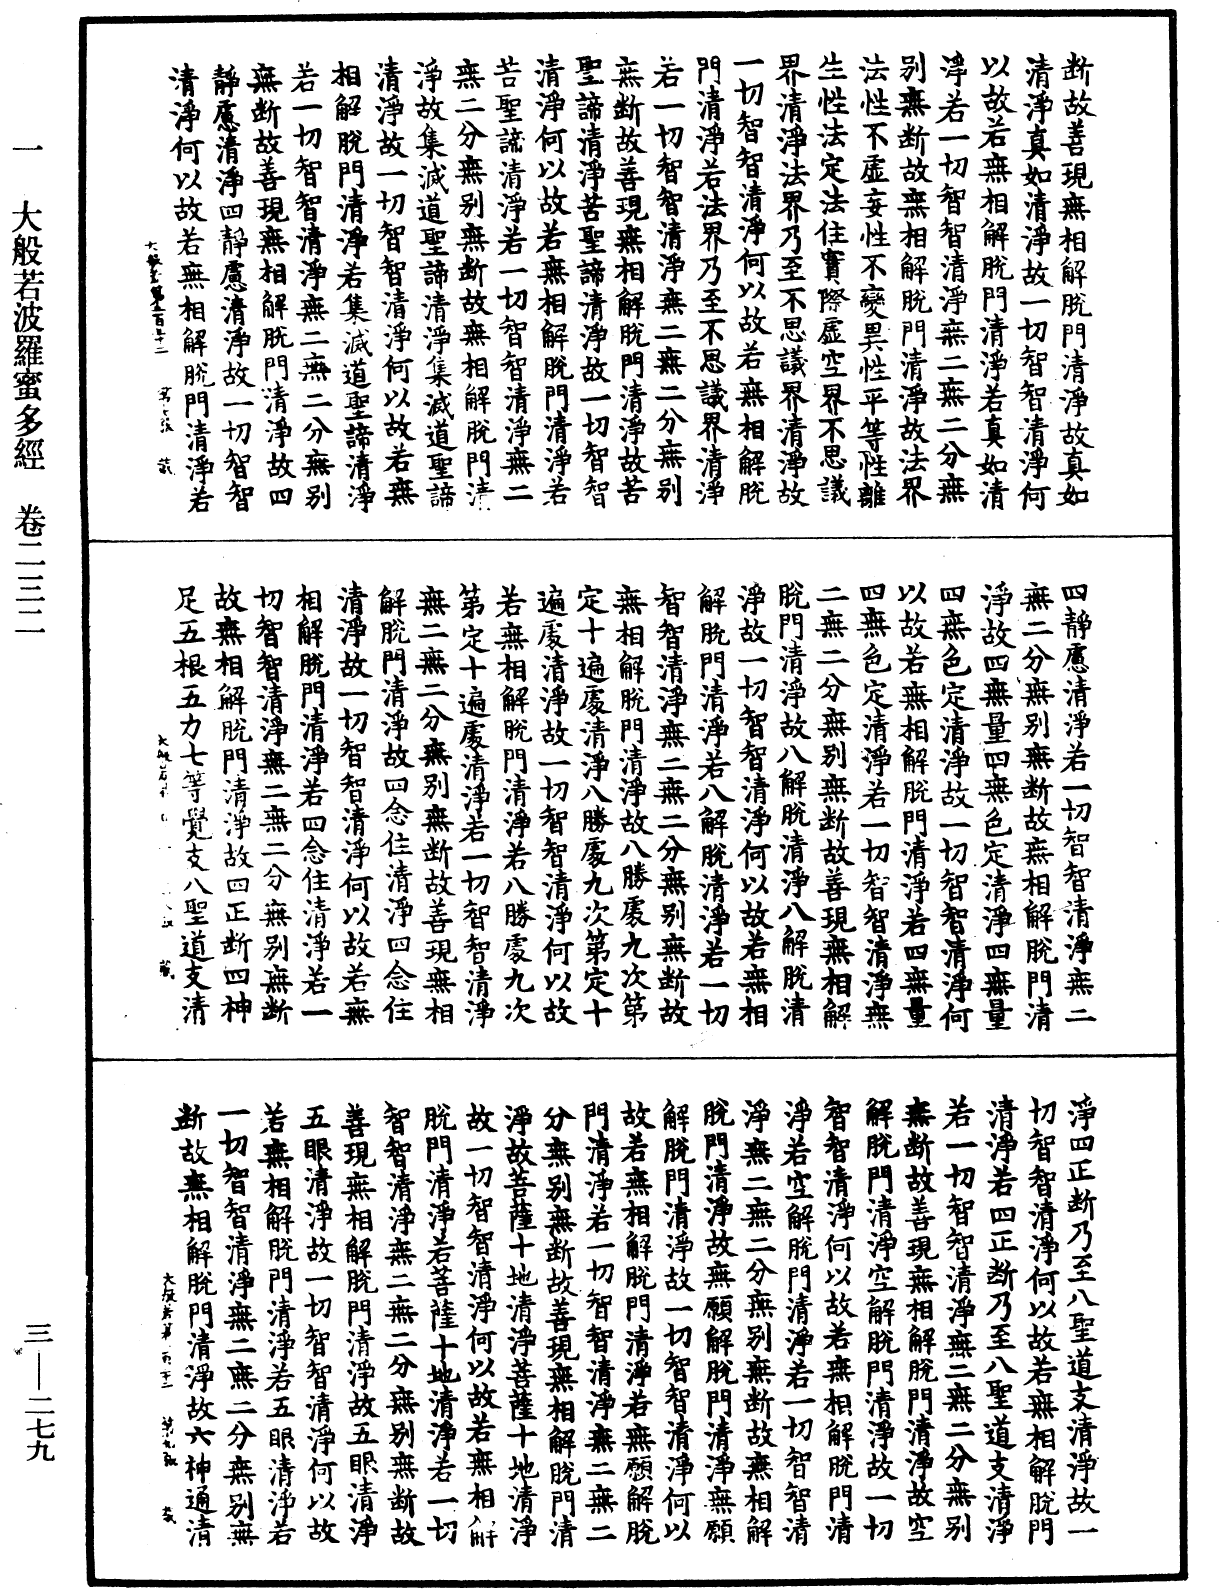 断故善現無相解脫門清淨故真如
清淨真如清淨故一切智智清淨何
以故若無相解脫門清淨若真如清
淨若一切智智清淨無二無二分無
別無断故無相解脫門清淨故法界
法性不虛妄性不變異性平等性離
生性法定法住實際虛空界不思議
界清淨法界乃至不思議界清淨故
一切智智清淨何以故若無相解脫
門清淨若法界乃至不思議界清淨
若一切智智清淨無二無二分無別
無断故善現無相解脫門清淨故苦
聖諦清淨苦聖諦清淨故一切智智
清淨何以故若無相解脫門清淨若
苦聖諦清淨若一切智智清淨無二
無二分無別無断故無相解脫門清
淨故集滅道聖諦清淨集滅道聖諦
清淨故一切智智清淨何以故若無
相解脫門清淨若集滅道聖諦清淨
若一切智智清淨無二無二分無別
無断故善現無相解脫門清淨故四
靜慮清淨四靜慮清淨故一切智智
清淨何以故若無相解脫門清淨若
四靜慮清淨若一切智智清淨無二
無二分無別無断故無相解脫門清
淨故四無量四無色定清淨四無量
四無色定清淨故一切智智清淨何
以故若無相解脫門清淨若四無量
四無色定清淨若一切智智清淨無
二無二分無別無断故善現無相解
脫門清淨故八解脫清淨八解脫清
淨故一切智智清淨何以故若無相
解脫門清淨若八解脫清淨若一切
智智清淨無二無二分無別無断故
無相解脫門清淨故八勝處九次第
定十遍處清淨八勝處九次第定十
遍處清淨故一切智智清淨何以故
若無相解脫門清淨若八勝處九次
第定十遍處清淨若一切智智清淨
無二無二分無別無断故善現無相
解脫門清淨故四念住清淨四念住
清淨故一切智智清淨何以故若無
相解脫門清淨若四念住清淨若一
切智智清淨無二無二分無別無断
故無相解脫門清淨故四正断四神
足五根五力七等覺支八聖道支清
淨四正断乃至八聖道支清淨故一
切智智清淨何以故若無相解脫門
清淨若四正断乃至八聖道支清淨
若一切智智清淨無二無二分無別
無断故善現無相解脫門清淨故空
解脫門清淨空解脫門清淨故一切
智智清淨何以故若無相解脫門清
淨若空解脫門清淨若一切智智清
淨無二無二分無別無断故無相解
脫門清淨故無願解脫門清淨無願
解脫門清淨故一切智智清淨何以
故若無相解脫門清淨若無願解脫
門清淨若一切智智清淨無二無二
分無別無断故善現無相解脫門清
淨故菩薩十地清淨菩薩十地清淨
故一切智智清淨何以故若無相解
脫門清淨若菩薩十地清淨若一切
智智清淨無二無二分無別無断故
善現無相解脫門清淨故五眼清淨
五眼清淨故一切智智清淨何以故
若無相解脫門清淨若五眼清淨若
一切智智清淨無二無二分無別無
断故無相解脫門清淨故六神通清
一 大般若波羅蜜多經 卷二三二
三—二七九